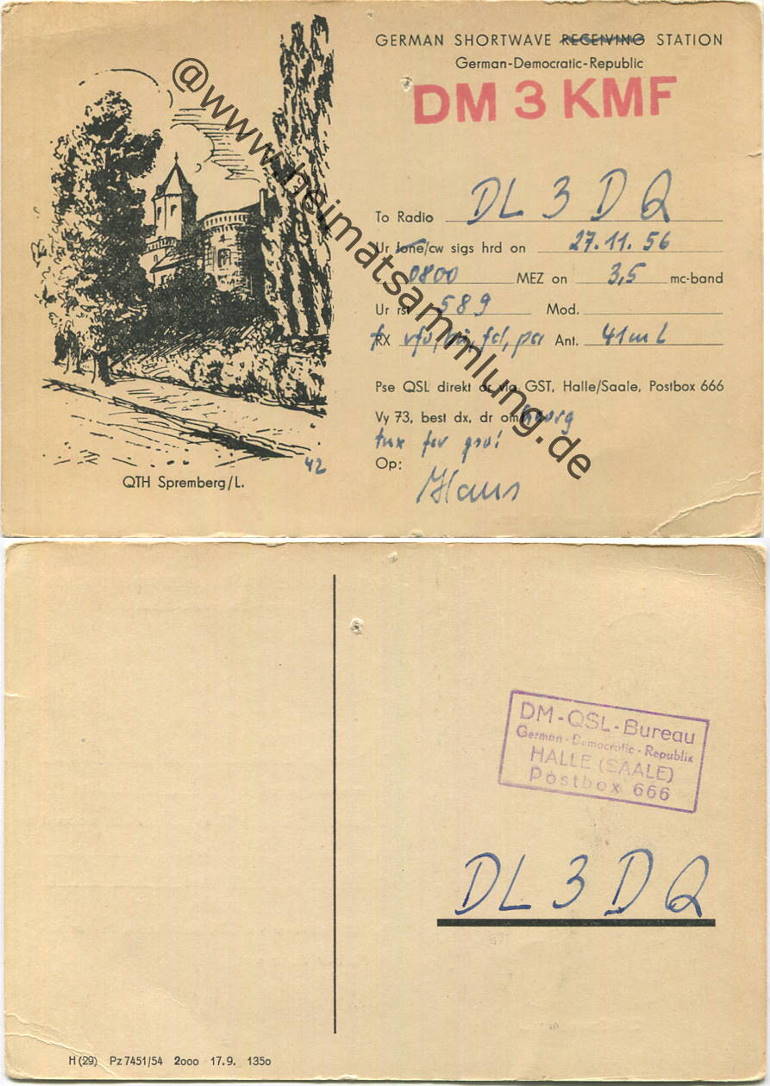 GERMAN SHORTWAVE RECEIVING STATION
German-Democratic-Republic
DM 3 KMF
To Radio DL 3 DQ
Ur fone/cw sigs hrd on 27.11.56
0800 MEZ on 3,5 mc-band
Ur rst 589 Mod.
RX Ant. 41m L
Pse QSL direkt or via GST, Halle/Saale, Postbox 666
Vy 73, best dx, dr om Georg
tnx fer qso!
Op: Hans
42
QTH Spremberg/L.
@www.heimatsammlung.de
DM-QSL-Bureau
German-Democratic-Republik
HALLE (SAALE)
Postbox 666
DL 3 DQ
H (29) Pz 7451/54 2000 17.9. 1350